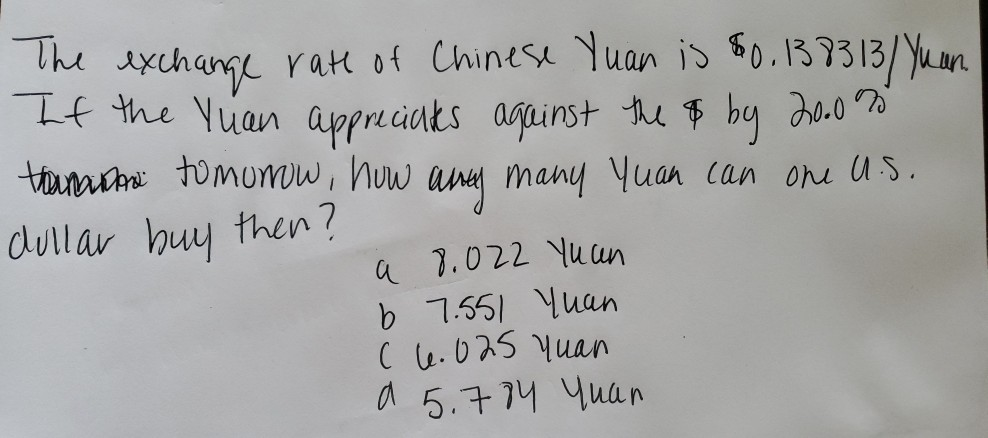 The exchange rate of Chinese Yuan is $0.138313/Yuan.
If the Yuan appreciates against the $ by 20.0%
tomorrow, how many Yuan can one U.S.
dollar buy then?
a 8.022 Yuan
b 7.551 Yuan
c 6.025 Yuan
d 5.784 Yuan